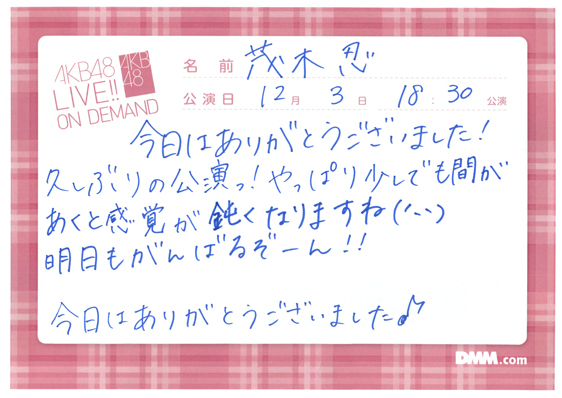 AKB48
LIVE!!
ON DEMAND
AKB
48
名前 茂木忍
公演日 12月 3日 18:30 公演
今日はありがとうございました!
久しぶりの公演っ!やっぱり少しでも間が
あくと感覚が鈍くなりますね(´、、)
明日もがんばるぞーん!!
今日はありがとうございました♪
DMM.com